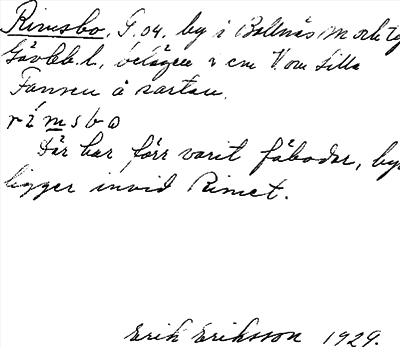 Rimsbo. S. o4. by i Bollnäs m ock tg
Gävleb. l., belägen 1 cm V om Lilla
Fannen å kartan.
rímsbo
Där har förr varit fäbodar, byn
ligger invid Rimet.
Erik Eriksson 1929.